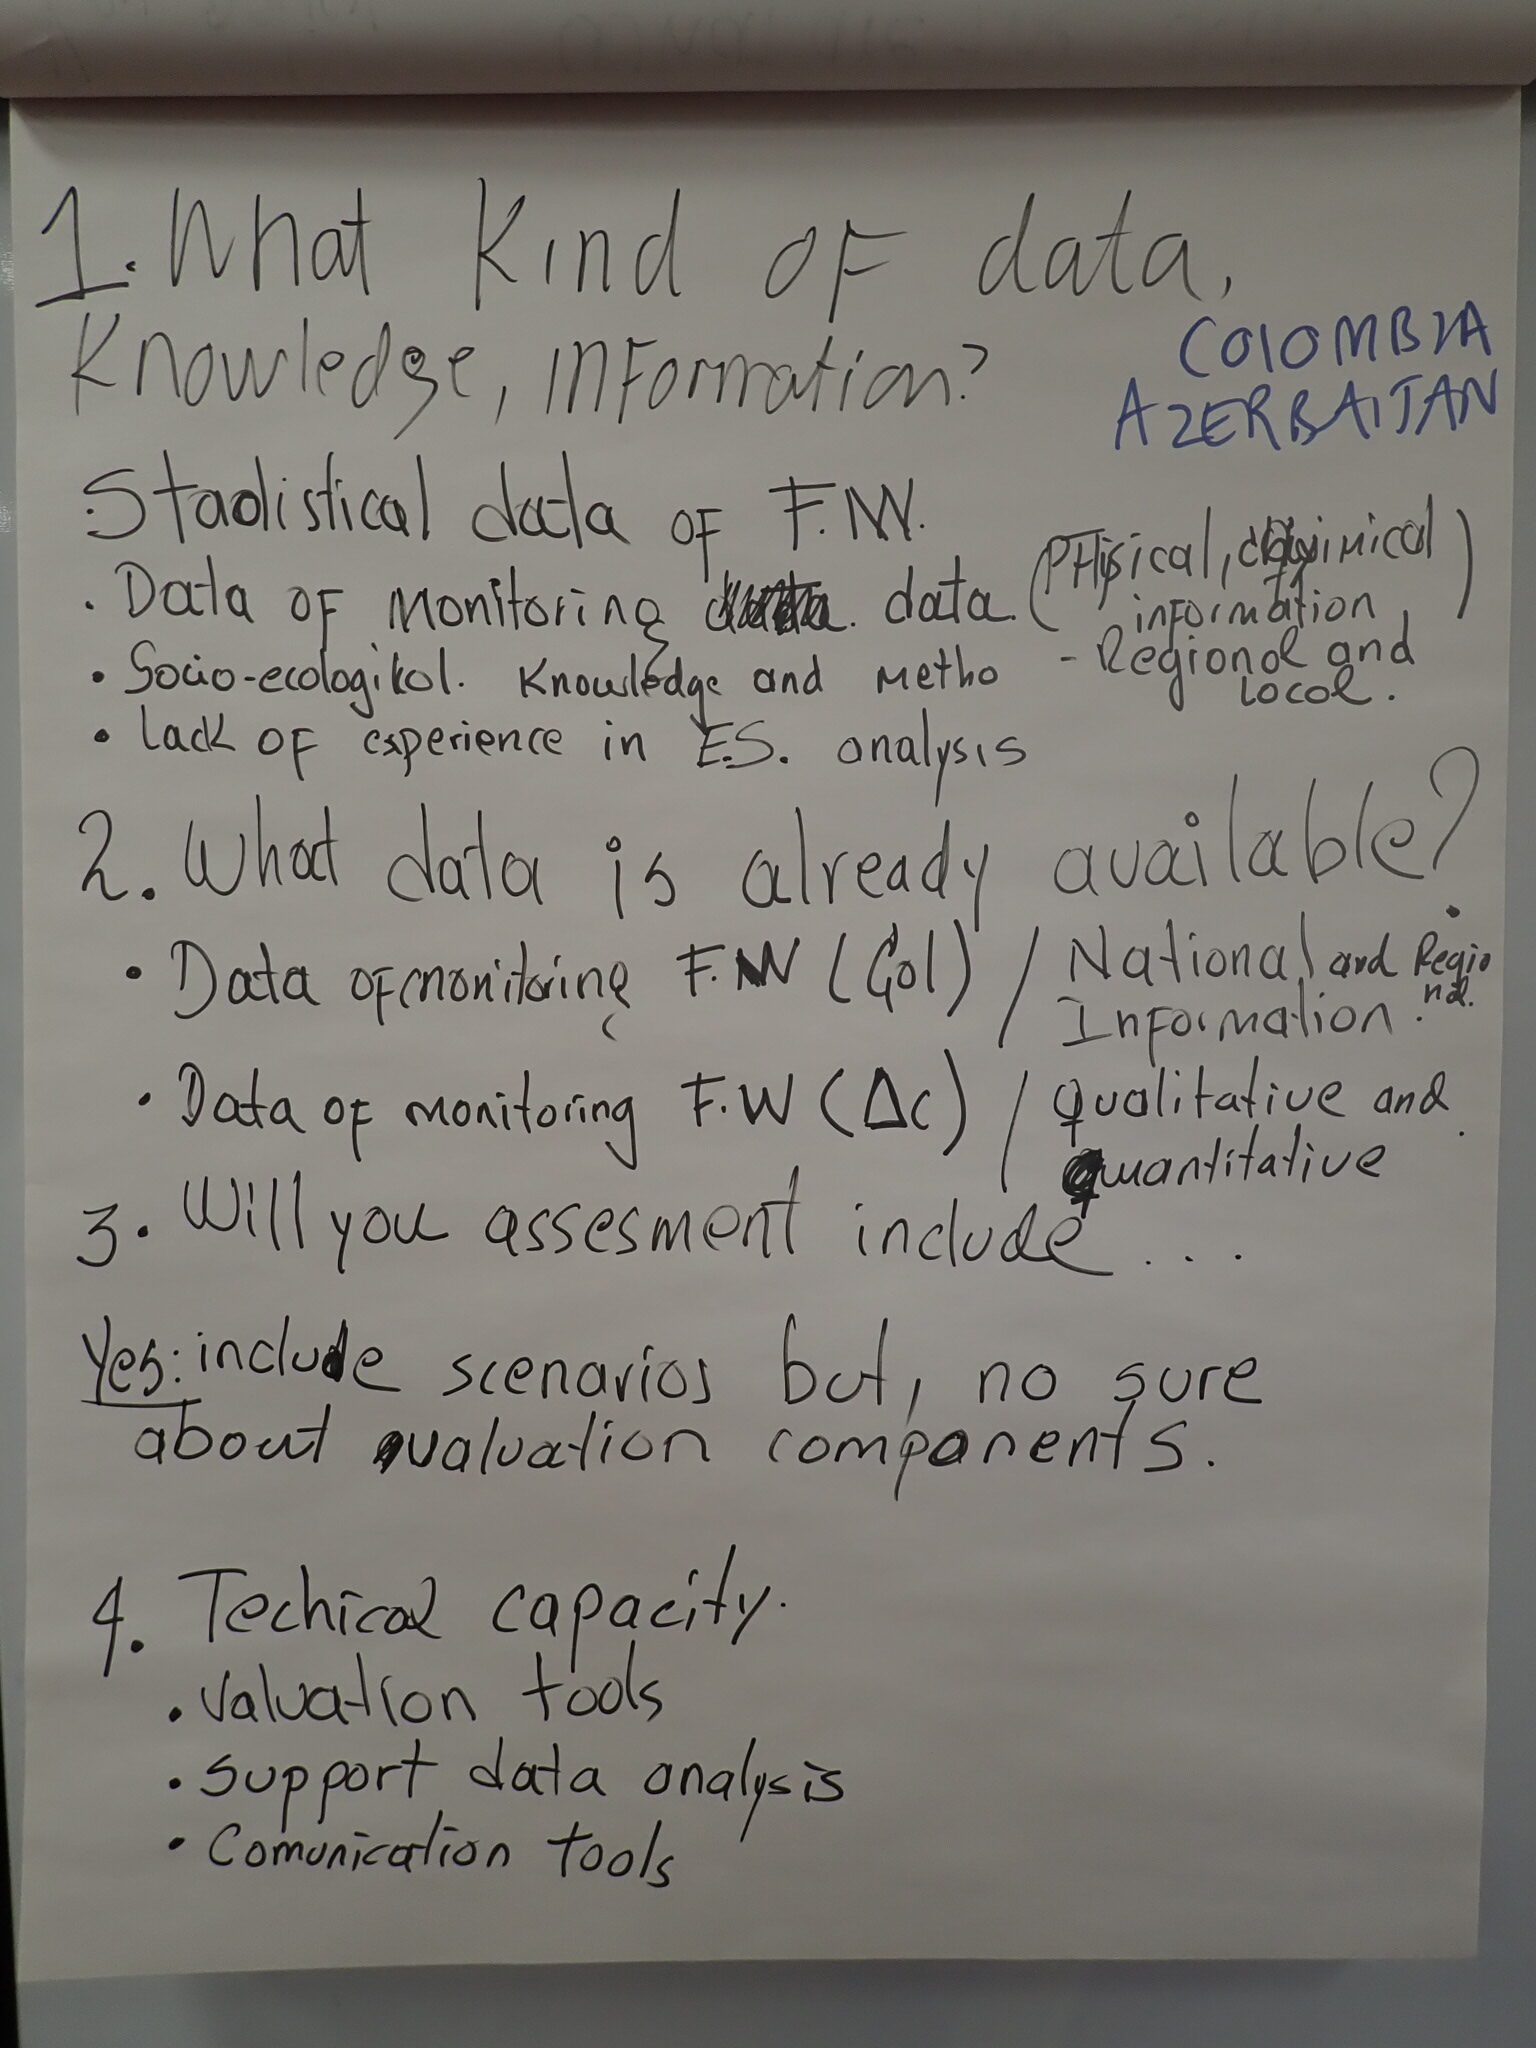 1. What kind of data,
Knowledge, information?
COLOMBIA
AZERBAIJAN
Stadistical data of F.W.
. Data of monitoring data. (PHisical, chimical
information
• Socio-ecologikol. Knowledge and metho
- Regional and
Local.
• Lack of experience in E.S. analysis
2. What data is already available?
• Data of monitoring F.W (Col) / National and Regio
nal.
Information.
• Data of monitoring F.W (Δc) / qualitative and
quantitative
3. Will you assesment include...
Yes: include scenarios but, no sure
about evaluation components.
4. Techical capacity.
• Valuation tools
• Support data analysis
• Comunication tools